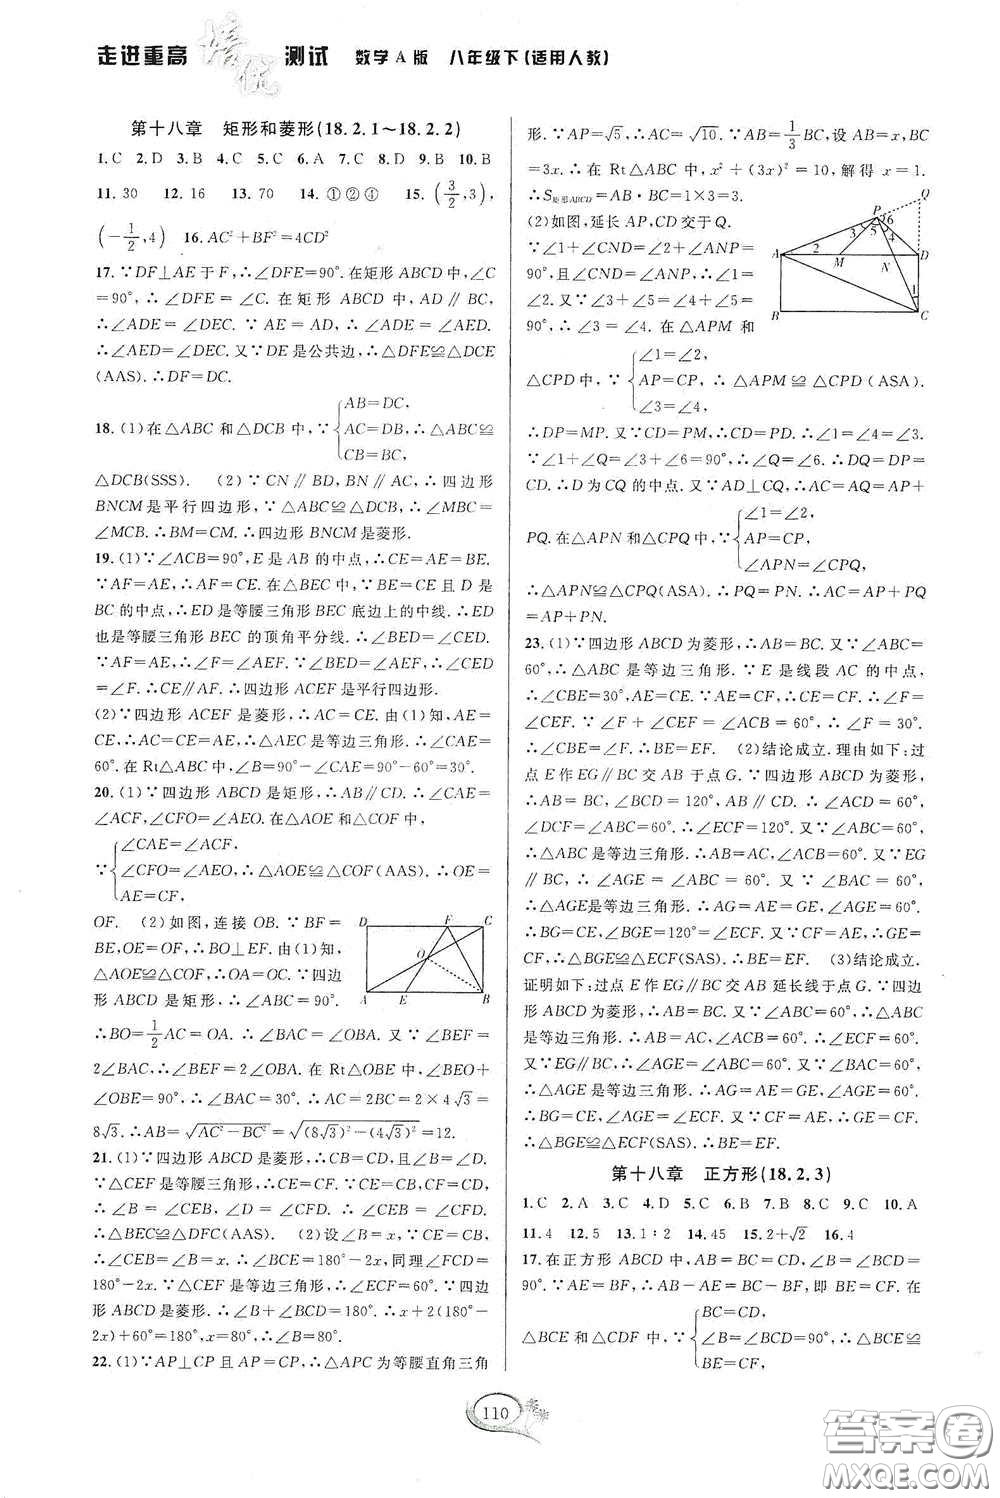 走进重高 培优 测试 数学A版 八年级下(适用人教)
第十八章 矩形和菱形(18.2.1～18.2.2)
1.C 2.D 3.B 4.C 5.C 6.A 7.C 8.D 9.B 10.B
11.30 12.16 13.70 14.①②④ 15.(3/2,3),
(-1/2,4) 16.AC²+BF²=4CD²
17.∵DF⊥AE于F,∴∠DFE=90°.在矩形ABCD中,∠C
=90°,∴∠DFE=∠C.在矩形ABCD中,AD∥BC,
∴∠ADE=∠DEC.∵AE=AD,∴∠ADE=∠AED.
∴∠AED=∠DEC.又∵DE是公共边,∴△DFE≌△DCE
(AAS).∴DF=DC.
AB=DC,
18.(1)在△ABC和△DCB中,∵ AC=DB,∴△ABC≌
CB=BC,
△DCB(SSS). (2)∵CN∥BD,BN∥AC,∴四边形
BNCM是平行四边形,∵△ABC≌△DCB,∴∠MBC=
∠MCB.∴BM=CM.∴四边形BNCM是菱形.
19.(1)∵∠ACB=90°,E是AB的中点,∴CE=AE=BE.
∵AF=AE,∴AF=CE.在△BEC中,∵BE=CE且D是
BC的中点,∴ED是等腰三角形BEC底边上的中线.∴ED
也是等腰三角形BEC的顶角平分线.∴∠BED=∠CED.
∵AF=AE,∴∠F=∠AEF.∵∠BED=∠AEF,∴∠CED
=∠F.∴CE∥AF.∴四边形ACEF是平行四边形.
(2)∵四边形ACEF是菱形,∴AC=CE.由(1)知,AE=CE,
∴AC=CE=AE,∴△AEC是等边三角形.∴∠CAE=
60°.在Rt△ABC中,∠B=90°-∠CAE=90°-60°=30°.
20.(1)∵四边形ABCD是矩形,∴AB∥CD.∴∠CAE=
∠ACF,∠CFO=∠AEO.在△AOE和△COF中,
∠CAE=∠ACF,
∵ ∠CFO=∠AEO,∴△AOE≌△COF(AAS).∴OE=
AE=CF,
OF. (2)如图,连接OB.∵BF=
BE,OE=OF,∴BO⊥EF.由(1)知,
△AOE≌△COF,∴OA=OC.∵四边
形ABCD是矩形,∴∠ABC=90°.
∴BO=1/2AC=OA.∴∠BAC=∠OBA.又∵∠BEF=
2∠BAC,∴∠BEF=2∠OBA.在Rt△OBE中,∠BEO+
∠OBE=90°,∴∠BAC=30°.∴AC=2BC=2×4√3=
8√3.∴AB=√AC²-BC²=√(8√3)²-(4√3)²=12.
D F C
O
A E B
21.(1)∵四边形ABCD是菱形,∴CB=CD,且∠B=∠D.
∵△CEF是等边三角形,∴CE=CF,且∠CEF=∠CFE.∴
∠B=∠CEB,∠D=∠CFD.∴∠CEB=∠CFD.
∴△BEC≌△DFC(AAS). (2)设∠B=x.∵CE=CB,
∴∠CEB=∠B=x.∴∠BCE=180°-2x,同理∠FCD=
180°-2x.∵△CEF是等边三角形,∴∠ECF=60°.∵四边
形ABCD是菱形.∴∠B+∠BCD=180°.∴x+2(180°-
2x)+60°=180°,x=80°,∴∠B=80°.
22.(1)∵AP⊥CP且AP=CP,∴△APC为等腰直角三角
形.∵AP=√5,∴AC=√10.∵AB=1/3BC,设AB=x,BC
=3x.∴在Rt△ABC中,x²+(3x)²=10,解得x=1.
∴S矩形ABCD=AB·BC=1×3=3.
(2)如图,延长AP,CD交于Q.
∵∠1+∠CND=∠2+∠ANP=
90°,且∠CND=∠ANP,∴∠1=
∠2.又∵∠3+∠5=∠4+∠5=
90°,∴∠3=∠4.在△APM和
∠1=∠2,
△CPD中,∵ AP=CP,∴△APM≌△CPD(ASA).
∠3=∠4,
P Q 6 5 4 3 2 1 A M N D B C
∴DP=MP.又∵CD=PM,∴CD=PD.∴∠1=∠4=∠3.
又∵∠1+∠Q=∠3+∠6=90°,∴∠Q=∠6.∴DQ=DP=
CD.∴D为CQ的中点.又∵AD⊥CQ,∴AC=AQ=AP+
∠1=∠2,
PQ.在△APN和△CPQ中,∵ AP=CP,
∠APN=∠CPQ,
∴△APN≌△CPQ(ASA).∴PQ=PN.∴AC=AP+PQ
=AP+PN.
23.(1)∵四边形ABCD为菱形,∴AB=BC.又∵∠ABC=
60°,∴△ABC是等边三角形.∵E是线段AC的中点,
∴∠CBE=30°,AE=CE.∵AE=CF,∴CE=CF.∴∠F=
∠CEF.∵∠F+∠CEF=∠ACB=60°,∴∠F=30°.
∴∠CBE=∠F.∴BE=EF. (2)结论成立.理由如下:过
点E作EG∥BC交AB于点G.∵四边形ABCD为菱形,
∴AB=BC,∠BCD=120°,AB∥CD.∴∠ACD=60°,
∠DCF=∠ABC=60°.∴∠ECF=120°.又∵∠ABC=60°,
∴△ABC是等边三角形.∴AB=AC,∠ACB=60°.又∵EG
∥BC,∴∠AGE=∠ABC=60°.又∵∠BAC=60°,
∴△AGE是等边三角形.∴AG=AE=GE,∠AGE=60°.
∴BG=CE,∠BGE=120°=∠ECF.又∵AE=CF,∴GE=
CF.∴△BGE≌△ECF(SAS).∴BE=EF. (3)结论成立.
证明如下:过点E作EG∥BC交AB延长线于点G.∵四边
形ABCD为菱形,∴AB=BC.又∵∠ABC=60°,∴△ABC
是等边三角形.∴AB=AC,∠ACB=60°.∴∠ECF=60°.
又∵EG∥BC,∴∠AGE=∠ABC=60°.又∵∠BAC=60°,
∴△AGE是等边三角形.∴AG=AE=GE,∠AGE=60°.
∴BG=CE,∠BGE=∠ECF.又∵CF=AE,∴GE=CF.
∴△BGE≌△ECF(SAS).∴BE=EF.
第十八章 正方形(18.2.3)
1.C 2.A 3.C 4.D 5.C 6.B 7.B 8.C 9.C 10.A
11.4 12.5 13.1∶2 14.45 15.2+√2 16.4
17.在正方形ABCD中,AB=BC=CD,∠B=∠BCD=
90°.∵AE=BF,∴AB-AE=BC-BF,即BE=CF.在
BC=CD,
△BCE和△CDF中,∵ ∠B=∠BCD=90°,∴△BCE≌
BE=CF,
110
答案圈
MXQE.COM